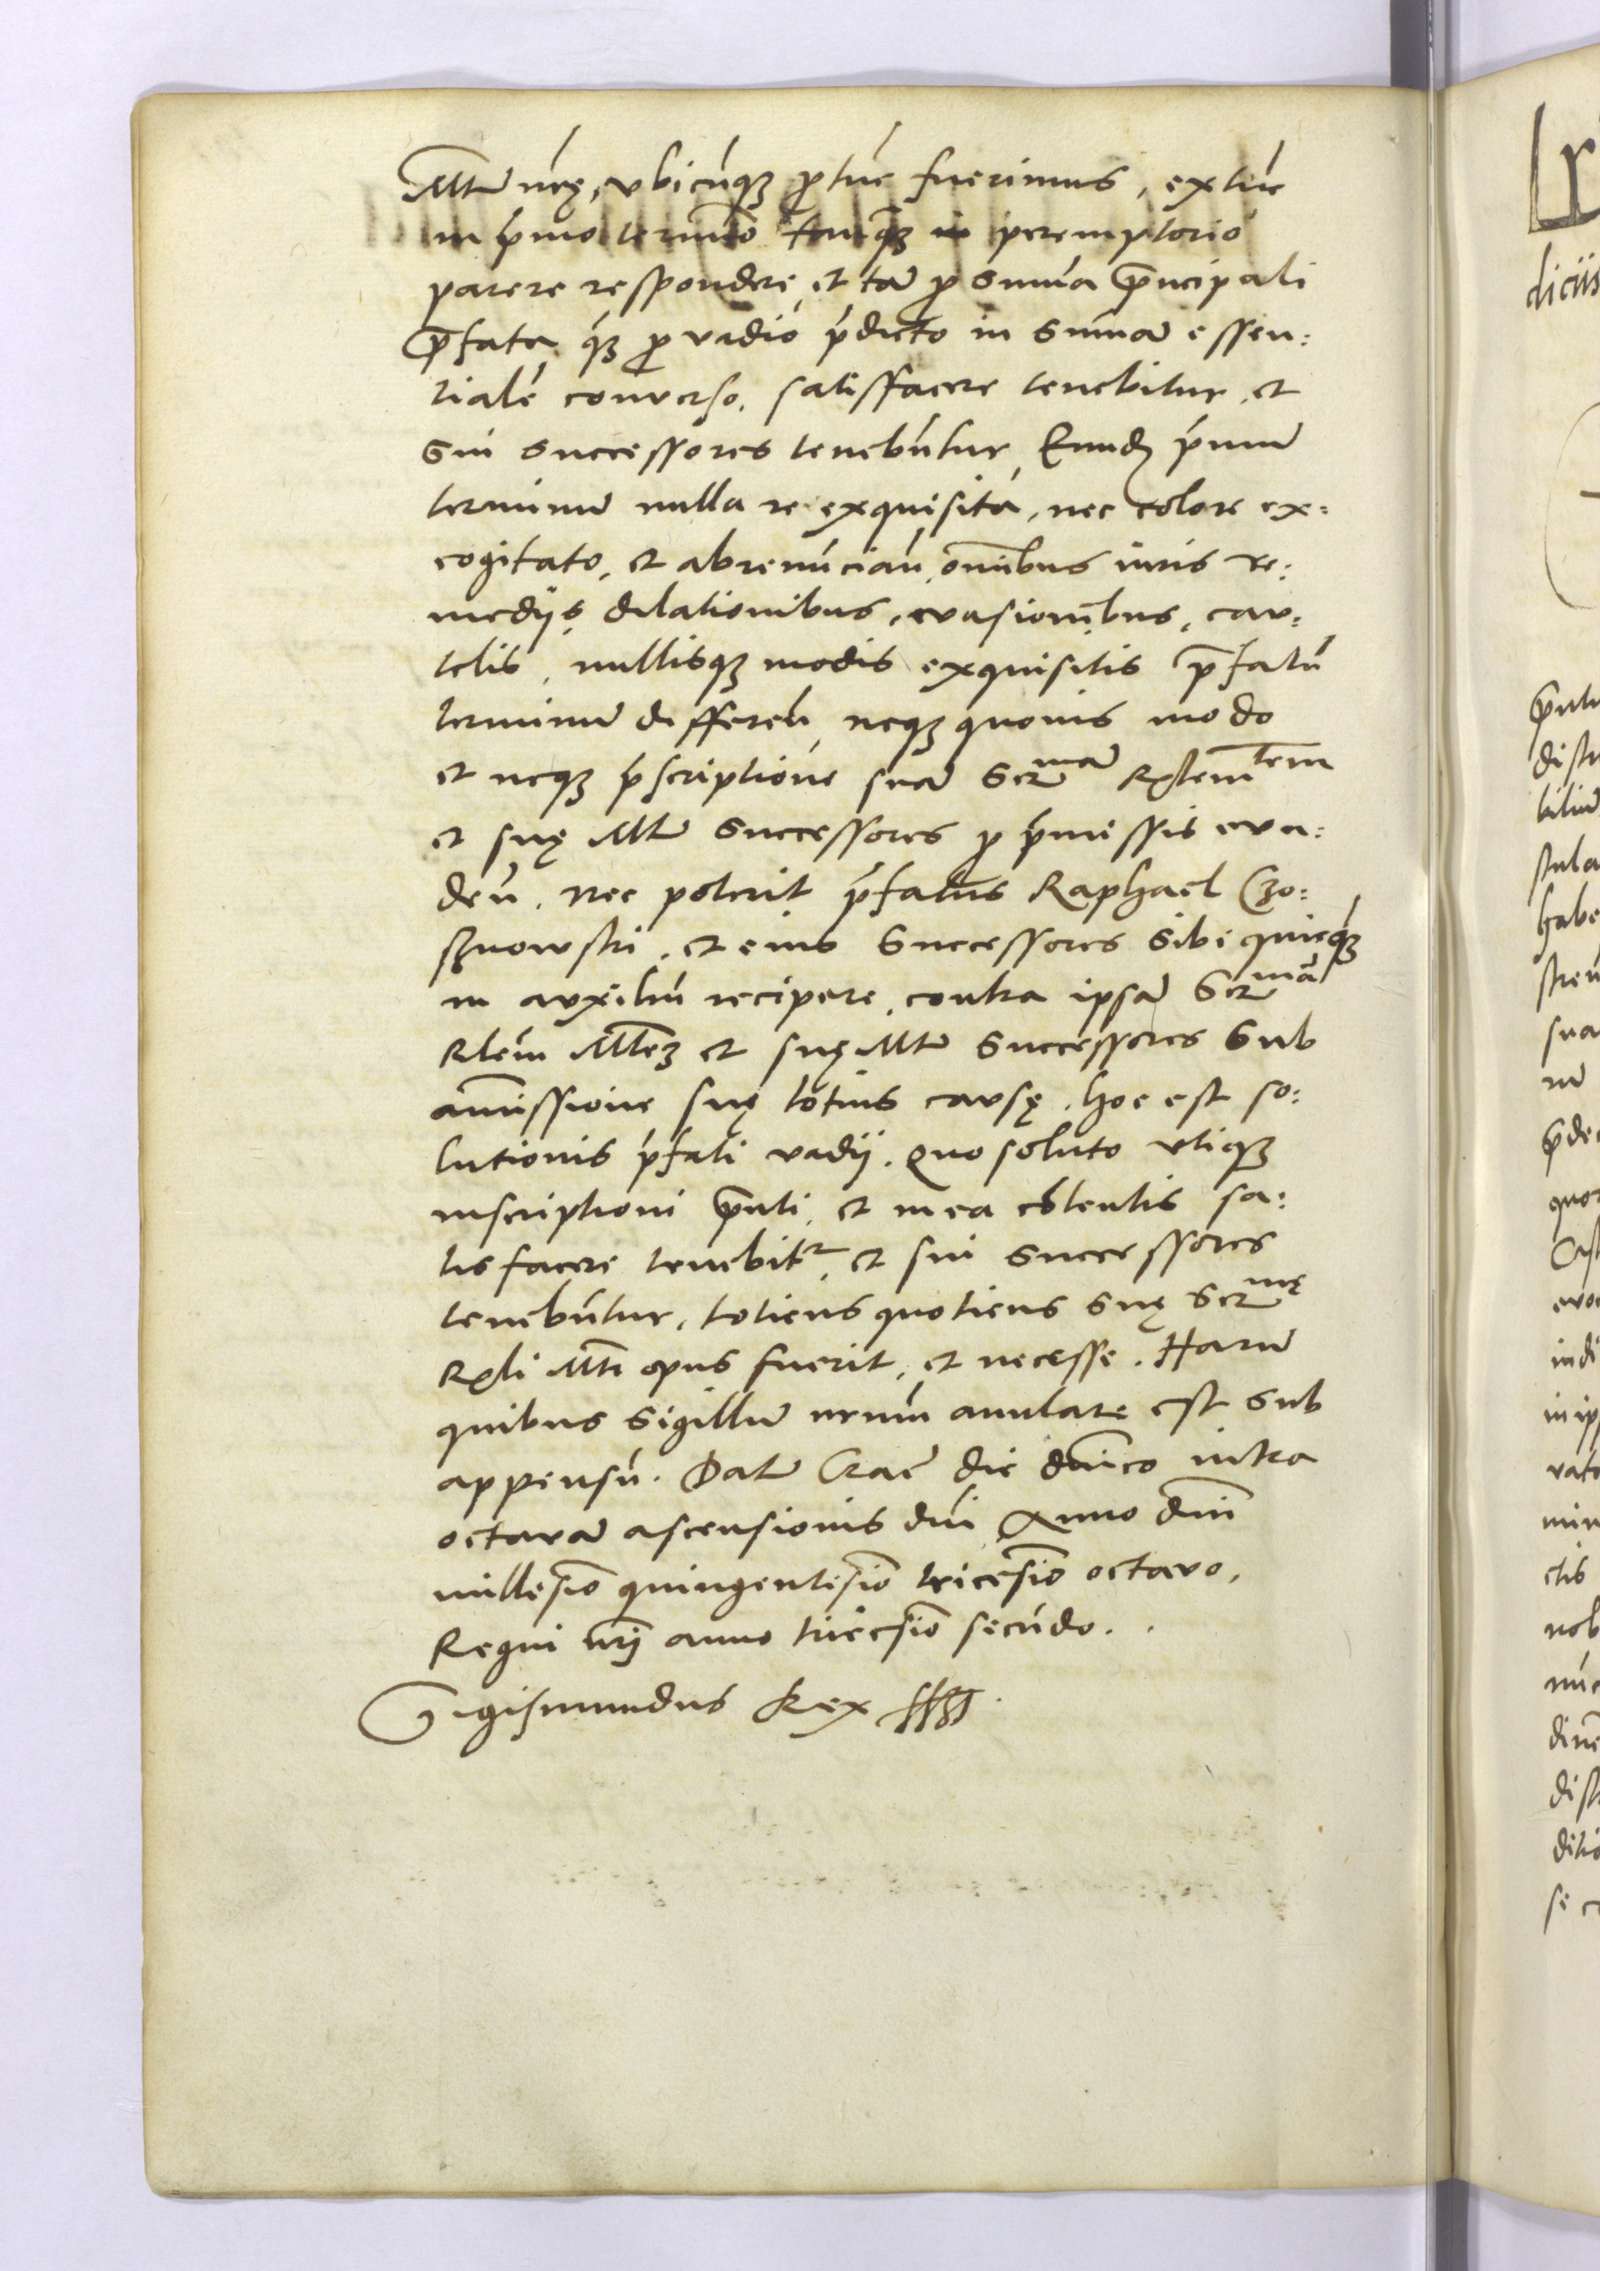 Mtti nrę, vbicunqꝫ ꝓtunc fuerimus, extunc
in primo termino tanqꝫ in peremptorio
parere respondere, et tam ꝓ summa principali
prefata, qꝫ ꝓ vadio predicto in summam essen:
tialem conuerso, satisfacere tenebitur, et
sui successores tenebuntur, Eundem primum
terminum nulla re exquisita, nec colore ex:
cogitato, et abrenuncian, omnibus iuris re:
medijs, dilationibus, euasionibus, cau:
telis, nullisqꝫ modis exquisitis prefatum
terminum differen, neqꝫ quouis modo
et neqꝫ prescriptione suam Sermam Rgem tem
et suę Mttis successores ꝓ premissis eua:
den, Nec poterit prefatus Raphael Czo:
sznowski, et eius Successores sibi quicqꝫ
in auxilium recipere, contra ipsam Sermam
Rlem Mttem et suę Mttis Successores Sub
amissione suę totius causę, hoc est so:
lutionis prefati vadij. Quo soluto vtiqꝫ
inscriptioni prnti, et in ea cotentis sa:
tisfacere tenebitr, et sui successores
tenebuntur, totiens quotiens suę Sermę
Rgli Mtti opus fuerit, et necesse. Harum
quibus Sigillum nrum anulare est sub
appensum. Datum Crac die dnico intra
octauam ascensionis dni Anno dni
millesimo quingentesimo tricesimo octauo,
Regni nrj anno tricesimo secundo.
Sigismundus Rex